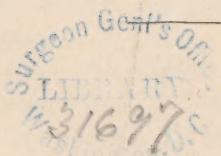 Surgeon Genl's Office
LIBRARY
31697
Washington, D.C.